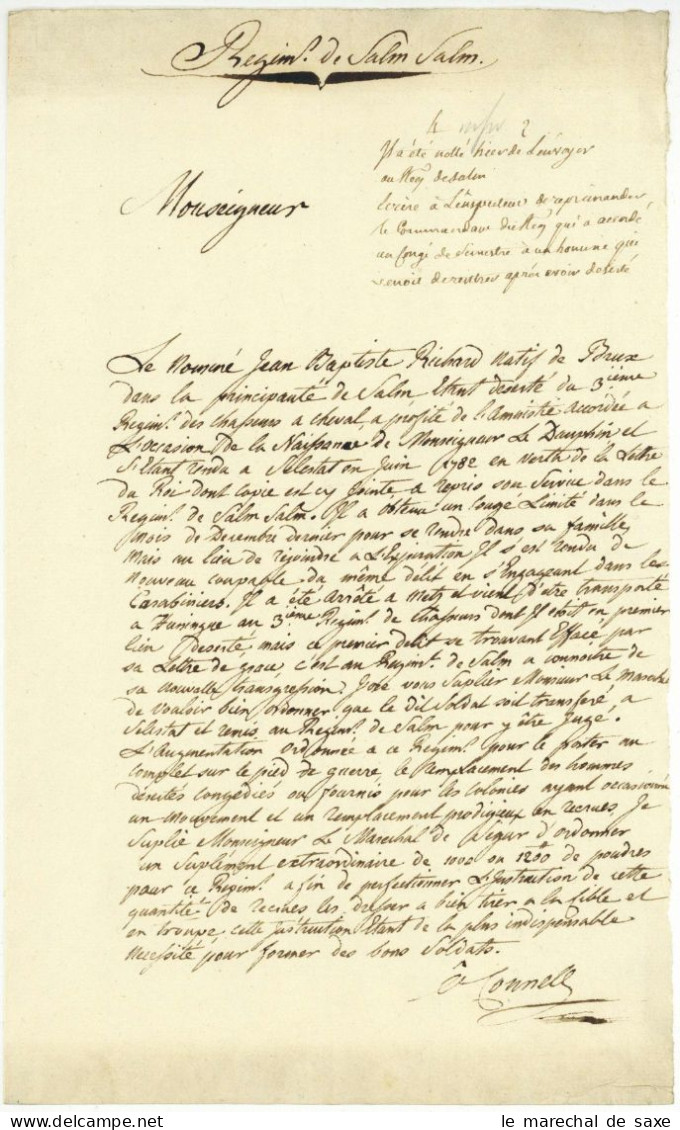 Regim.t de Salm Salm.
Il a été notté hier de L'envoyer
au Reg de Salm
Ecrire à L'inspecteur de reprimander
le Commandant du Reg qui a accordé
un Congé de Semestre à un homme qui
venoit de rentrer après avoir deserté
Monseigneur
Le Nommé Jean Baptiste Richard Natif de Brux
dans la principauté de Salm Etant deserté du 3.ieme
Regim.t des chasseurs a cheval, a profité de l'Amnistie accordée a
L'occasion de la Naissance de Monseigneur Le Dauphin et
S'Etant rendu a Selestat en Juin 1782 en Vertu de la Lettre
du Roi dont copie est cy jointe a repris son Service dans le
Regim.t de Salm Salm. Il a obtenu un Congé Limité dans le
mois de Decembre dernier pour se rendre dans sa famille,
mais au lieu de rejoindre a L'Expiration Il s'est rendu de
nouveau coupable du même délit en s'Engageant dans les
Carabiniers. Il a été arrêté a Metz et vient d'être transporté
a Huningue au 3.ieme Regim.t de chasseurs dont Il etoit en premier
lieu deserté, mais ce premier delit se trouvant Effacé par
sa Lettre de grace c'est au Regim.t de Salm a connoitre de
sa nouvelle transgression. J'ose vous Suplier Monsieur Le Marechal
de Vouloir bien ordonner que le dit Soldat soit transferé a
Selestat et remis au Regim.t de Salm pour y être Jugé.
L'Augmentation ordonnée a ce Regim.t pour le porter au
complet sur le pied de guerre, le remplacement des hommes
congédiés ou fournis pour les colonies ayant occasionné
un mouvement et un remplacement prodigieux en recrues, Je
Suplie Monseigneur Le Marechal de Ségur d'ordonner
un Suplément extraordinaire de 1000 ou 1200 de poudres
pour ce Regim.t afin de perfectionner L'Instruction de cette
quantité de recrues les dresser a bien tirer a la cible et
en troupe, cette instruction Etant de la plus indispensable
necessité pour former des bons Soldats.
O Connell
le marechal de saxe